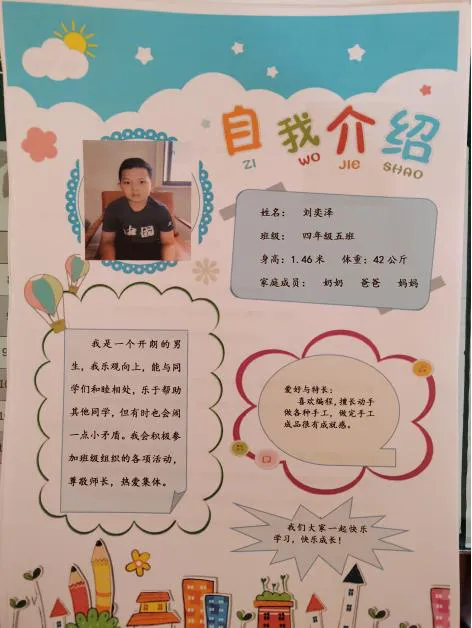 自我介绍
ZI WO JIE SHAO
姓名： 刘奕泽
班级： 四年级五班
身高：1.46 米 体重：42 公斤
家庭成员： 奶奶 爸爸 妈妈
我是一个开朗的男
生，我乐观向上，能与同
学们和睦相处，乐于帮助
其他同学，但有时也会闹
一点小矛盾。我会积极参
加班级组织的各项活动，
尊敬师长，热爱集体。
爱好与特长：
喜欢编程,擅长动手
做各种手工，做完手工
成品很有成就感。
我们大家一起快乐
学习，快乐成长！